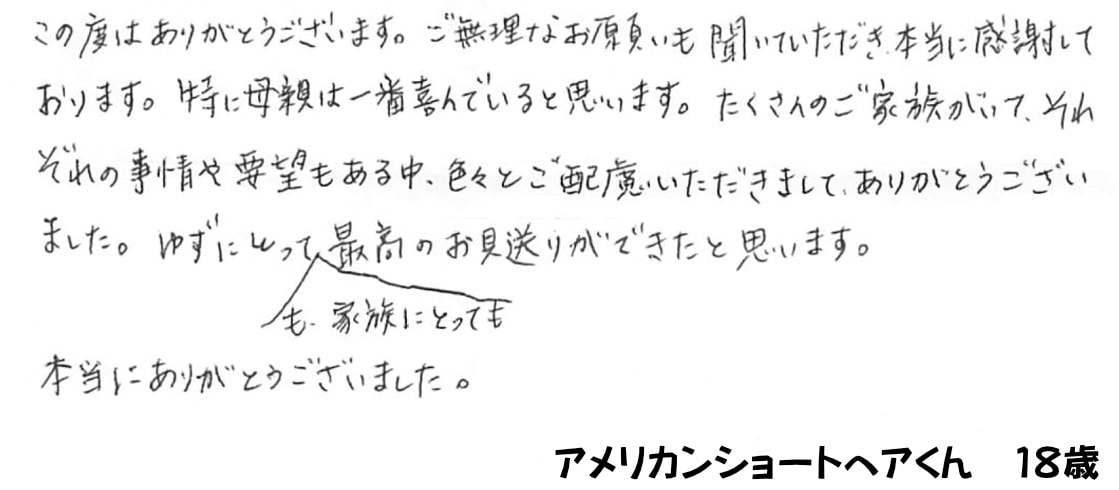 この度はありがとうございます。ご無理なお願いも聞いていただき本当に感謝して
おります。特に母親は一番喜んでいると思います。たくさんのご家族がいて、それ
ぞれの事情や要望もある中、色々とご配慮いただきまして、ありがとうござい
ました。ゆずにとって最高のお見送りができたと思います。
も、家族にとっても
本当にありがとうございました。
アメリカンショートヘアくん　18歳